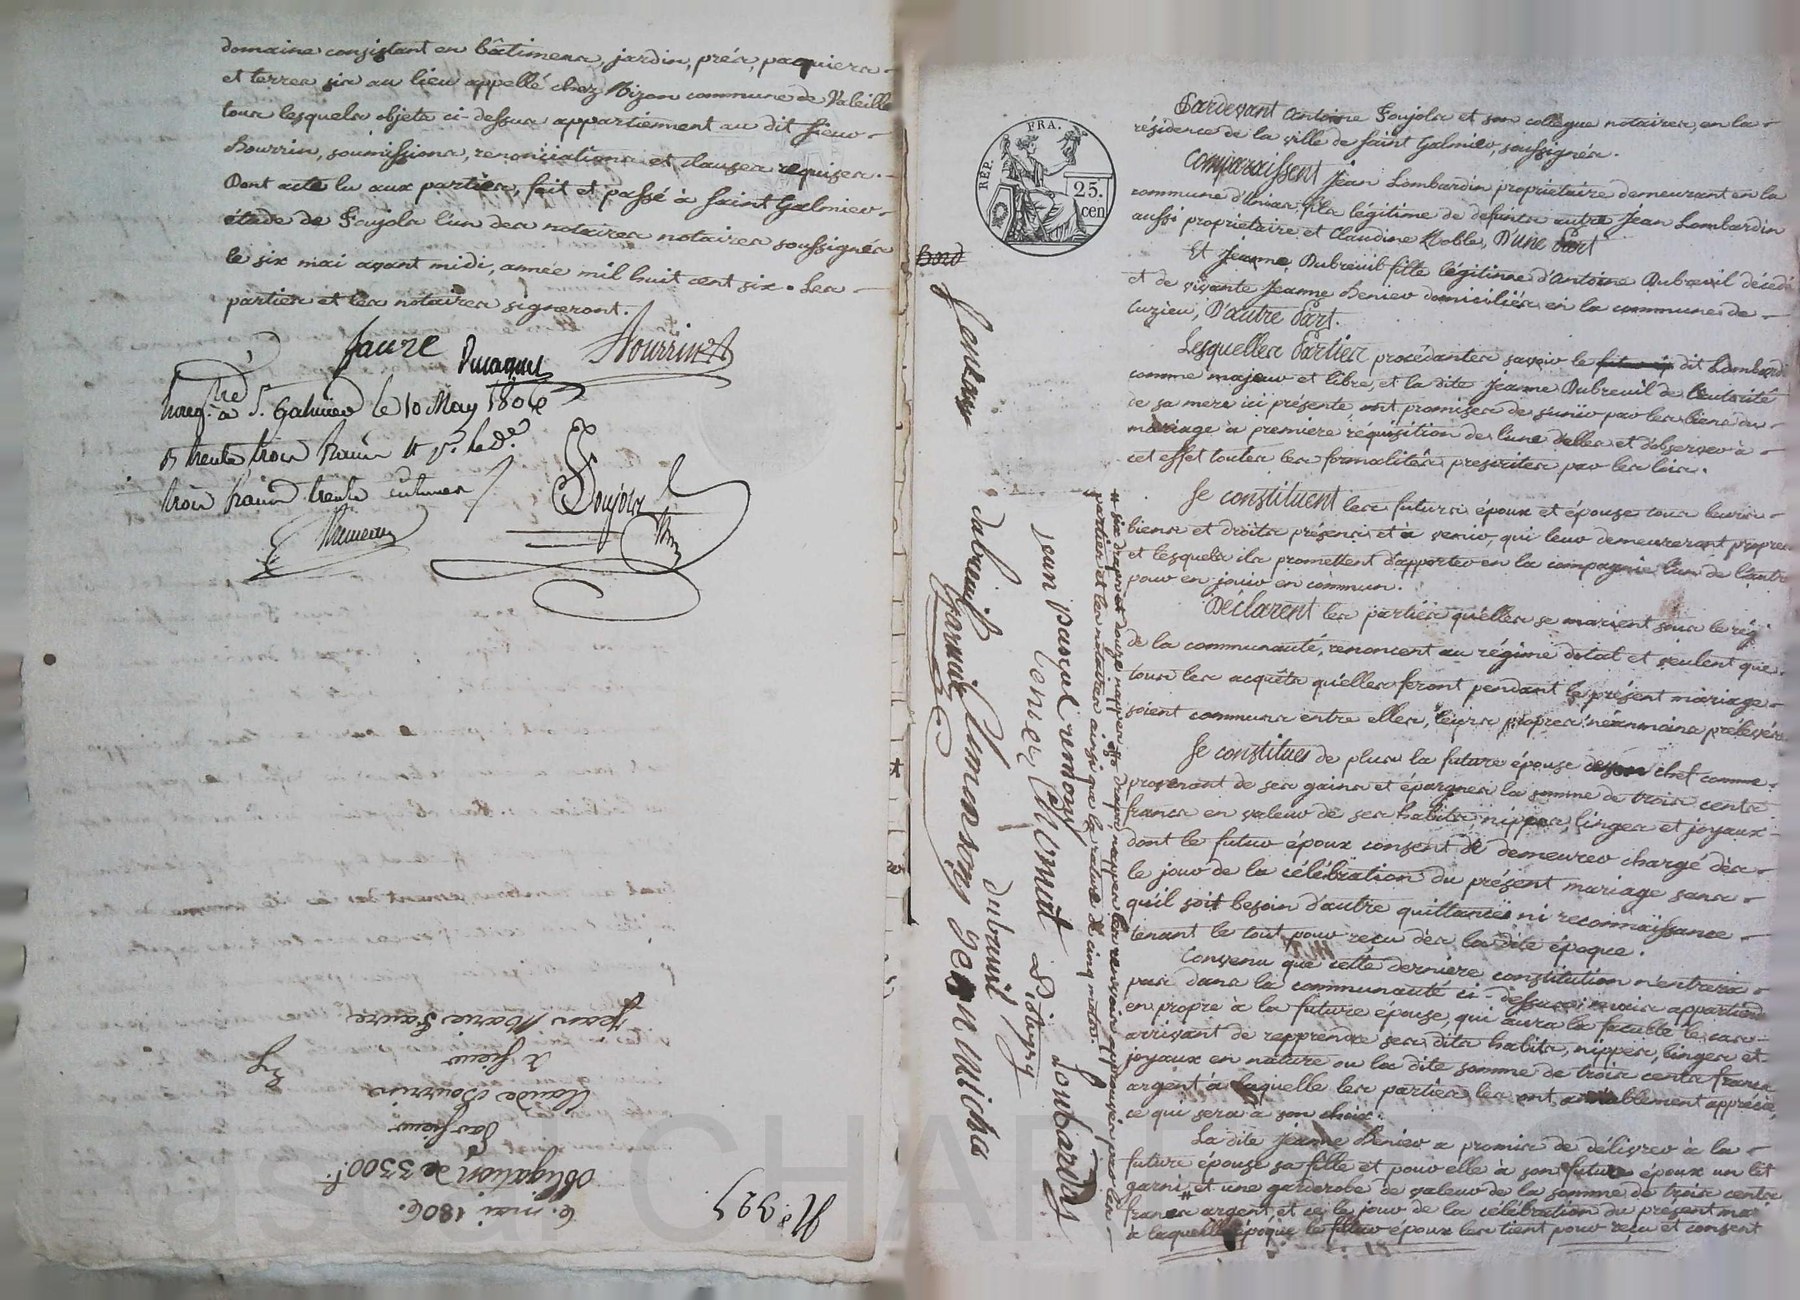 domaine consistant en bâtimens, jardin, prés, paquiers
et terres sis au lieu appellé chez Bizon commune de Valeille
tous lesquels objets ci-dessus appartiennent au dit sieur
Bourrin, soumissions, renonciations et clauses requises.
Dont acte lu aux parties, fait et passé à Saint Galmier
étude de Poujola l'un des notaires notaires soussignés
le six mai avant midi, année mil huit cent six. Les
parties et les notaires signeront.
faure Ducaquet Bourrin
à St. Galmier le 10 May 1806
trente trois
trois francs trente centimes
Poujola
6. mai 1806.
Obligation de 3300 f.
Par sieur
Claude Bourrin
à sieur
Jean Marie Faure
N° 927
REP. FRA.
25.
cen
Pardevant Antoine Poujola et son collègue notaires en la
résidence de la ville de Saint Galmier, soussignés.
Comparaissent Jean Lombardin propriétaire demeurant en la
commune d'Unias, fils légitime de defunts autre Jean Lombardin
aussi propriétaire et Claudine Noble, D'une Part
Et Jeanne Dubreuil fille légitime d'Antoine Dubreuil décédé
et de vivante Jeanne Benier domiciliés en la commune de
Cuzieu, D'autre Part.
Lesquelles Parties procédantes savoir le dit Lombardin
comme majeur et libre, et la dite Jeanne Dubreuil de l'autorité
de sa mere ici présente, ont promises de s'unir par les liens du
mariage à premiere réquisition de l'une d'elles et d'observer à
cet effet toutes les formalités prescrites par les lois.
Se constituent les futurs époux et épouse tous leurs
biens et droits présens et à venir, qui leur demeureront propres
et lesquels ils promettent d'apporter en la compagnie l'un de l'autre
pour en jouir en commun.
Déclarent les parties qu'elles se marient sous le rég
de la communauté, renoncent au régime dotal et veulent que
tous les acquêts qu'elles feront pendant le présent mariage
soient communs entre elles, leurs propres néanmoins prélevés
Se constitue de plus la future épouse de son chef comme
provenant de ses gains et épargnes la somme de trois cents
francs en valeur de ses habits, nippes, linges et joyaux
dont le futur époux consent de demeurer chargé dès
le jour de la célébration du présent mariage sans
qu'il soit besoin d'autre quittance ni reconnaissance
tenant le tout pour reçu dès la dite époque.
Convenu que cette derniere constitution n'entrera
pas dans la communauté ci-dessus, mais appartiend
en propre à la future épouse, qui aura la faculté le cas
arrivant de reprendre ses dits habits, nippes, linges et
joyaux en nature ou la dite somme de trois cents francs
argent à laquelle les parties les ont amiablement appréciés
ce qui sera à son choix.
La dite Jeanne Benier a promis de délivrer à la
future épouse sa fille et pour elle à son futur époux un lit
garni et une garderobe de valeur de la somme de trois cents
francs argent et ce le jour de la célébration du présent ma
à laquelle époque le futur époux les tient pour reçu et consent
six draps et douze nappes draps nappes les renvois approuvés par les
parties et les notaires ainsi que la rature de cinq mots.
jean pascal remond
dubreuil
dubreuil
jean micha
Lombardin